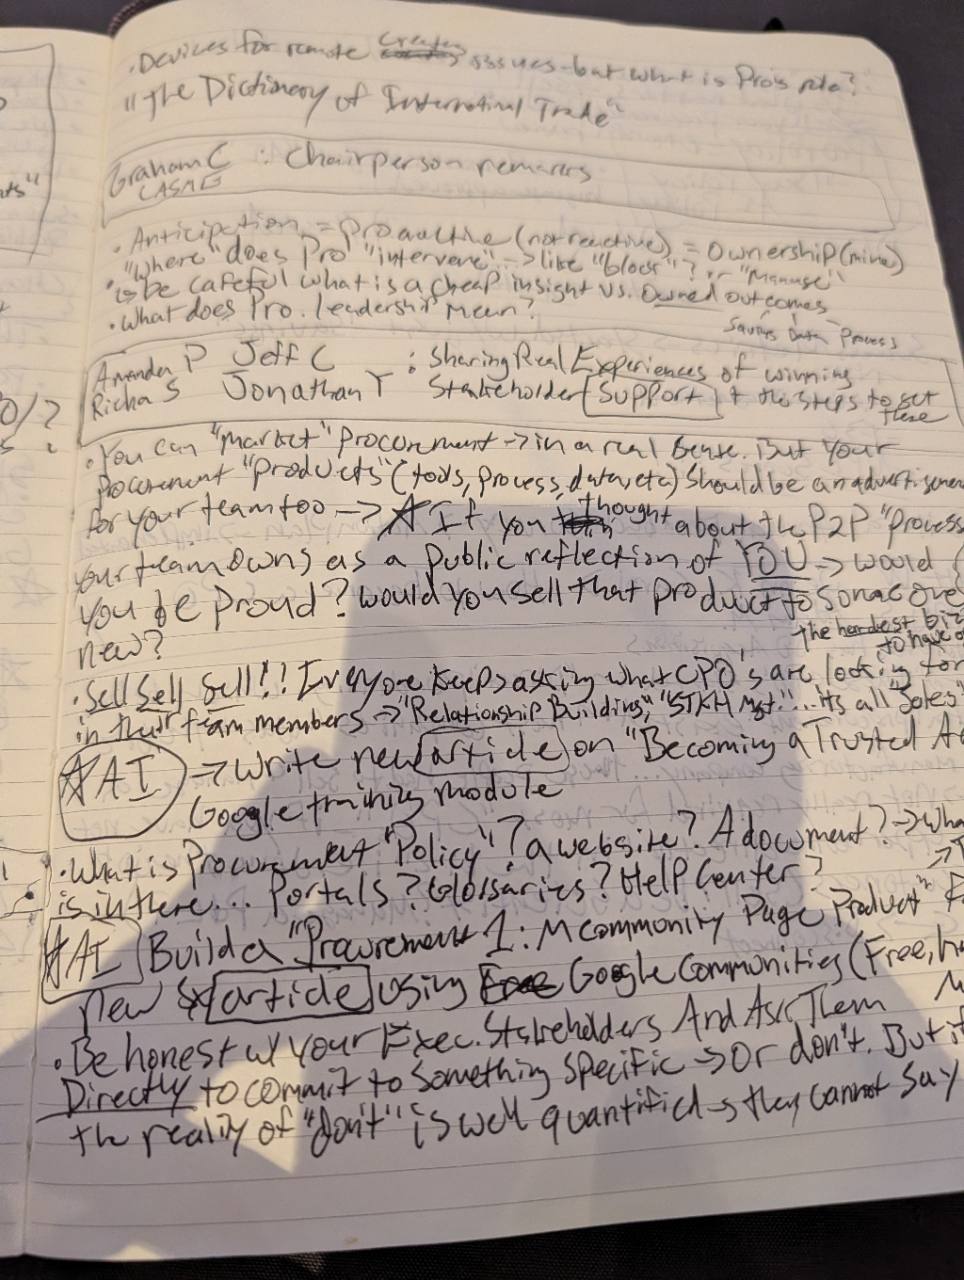 · Devices for remote creates issues - but what is Pro's role?
"The Dictionary of International Trade"
Graham C : Chairperson remarks
CASME
· Anticipation = Proactive (not reactive) = Ownership (mine)
· "Where" does Pro "intervene" → like "block"? or "Manage"
↳ be careful what is a cheap insight vs. Owned outcomes
· What does Pro. leadership mean?
Savings Data Process
Amanda P Jeff C : Sharing Real Experiences of winning
Richa S Jonathan Y Stakeholder Support + the steps to get there
· You can "market" Procurement → in a real sense. But your
Procurement "products" (tools, process, data, etc) should be an advertisemen
for your team too → ☆ If you thought about the P2P "Process
your team owns as a public reflection of YOU → would
you be proud? Would you sell that product to someone
new?
the hardest biz
to have
· Sell Sell Sell!! Everyone keeps asking what CPO's are looking for
in their team members → "Relationship Building," "STKH Mgt."... its all "Sales"
☆ AI → Write new article on "Becoming a Trusted
Google training module
· What is Procurement "Policy"? a website? A document? → Wha
is in there... Portals? Glossaries? Help Center?
☆ AI Build a "Procurement 1:M community Page Product"
new article using Google Communities (Free,
· Be honest w/ your Exec. Stakeholders And Ask Them
Directly to commit to something specific → Or don't. But if
the reality of "don't" is well quantified → they cannot say